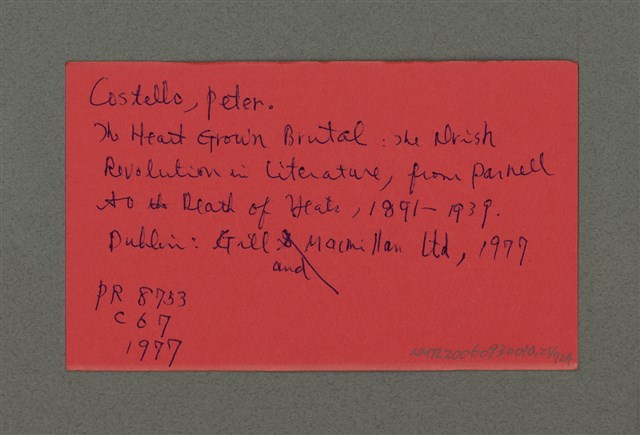 Costello, Peter.
The Heart Grown Brutal: The Irish
Revolution in Literature, from Parnell
to the Death of Yeats, 1891-1939.
Dublin: Gill & Macmillan Ltd, 1977
and
PR 8753
C 67
1977